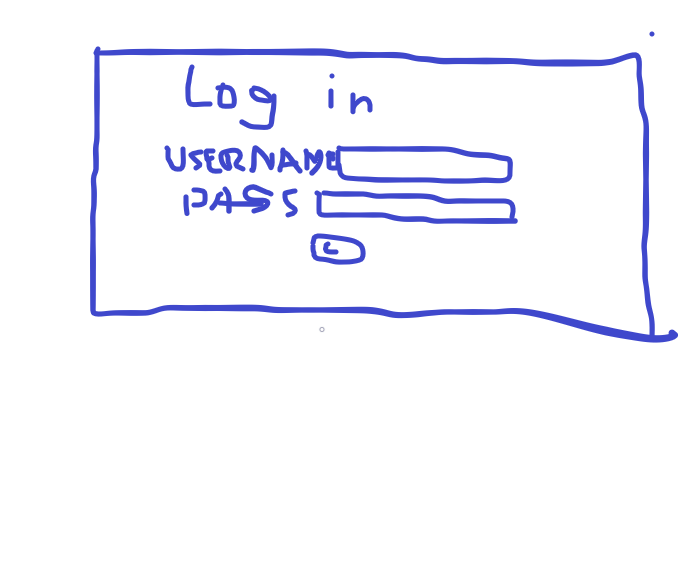 Log in
USERNAME
PASS